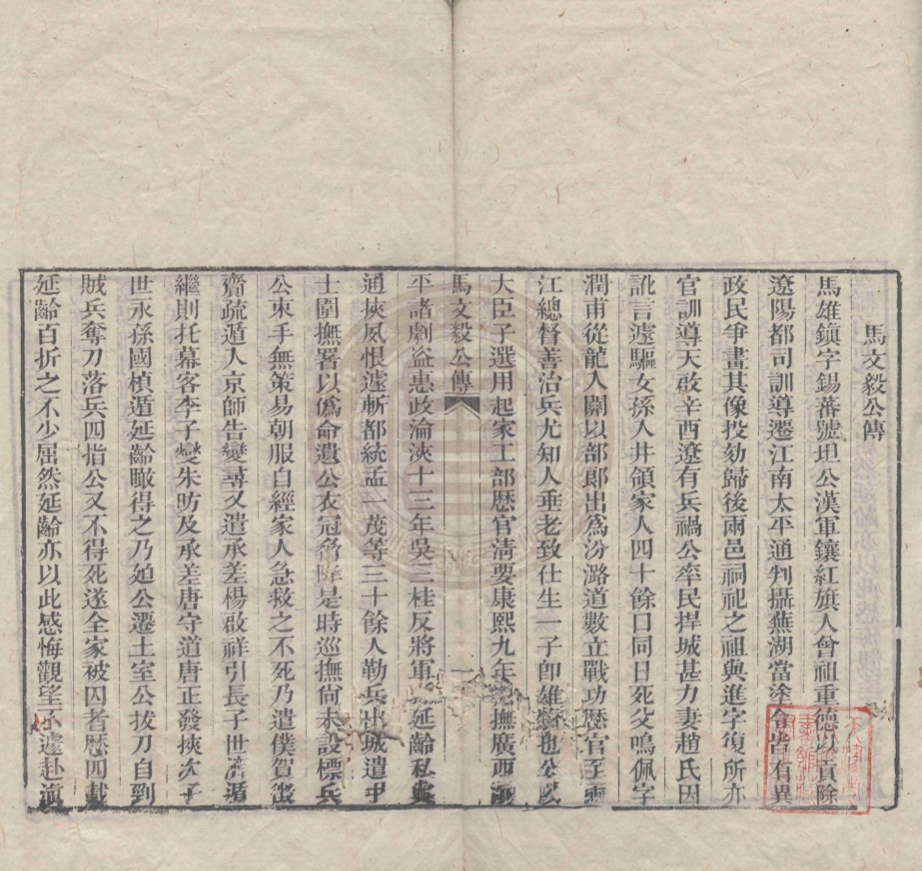 馬文毅公傳
馬雄鎭字錫蕃號坦公漢軍鑲紅旗人曾祖重德以貢除
遼陽都司訓導遷江南太平通判攝蕪湖當塗令皆有異
政民爭畫其像投劾歸後兩邑祠祀之祖與進字復所亦
官訓導天啟辛酉遼有兵禍公率民捍城甚力妻趙氏因
訛言遽驅女孫入井領家人四十餘口同日死父鳴佩字
潤甫從龍入關以部郎出爲汾潞道數立戰功歷官至兩
江總督善治兵尤知人垂老致仕生一子卽雄鎭也公以
大臣子選用起家工部歷官淸要康熙九年撫廣西
馬文毅公傳 一
平諸劇盜惠政淪浹十三年吳三桂反將軍孫延齡私與
通挾夙恨遽斬都統孟一茂等三十餘人勒兵出城遣甲
士圍撫署以僞命遺公衣冠脅降是時巡撫尙未設標兵
公束手無策易朝服自經家人急救之不死乃遣僕賀
齎疏遁入京師告變尋又遣承差楊啟祥引長子世濟遁
繼則托幕客李子燮朱昉及承差唐守道唐正發挾次子
世永孫國楨遁延齡瞰得之乃廹公遷土室公拔刀自刭
賊兵奪刀落兵四指公又不得死遂全家被囚者歷四載
延齡百折之不少屈然延齡亦以此感悔觀望不遽赴滇